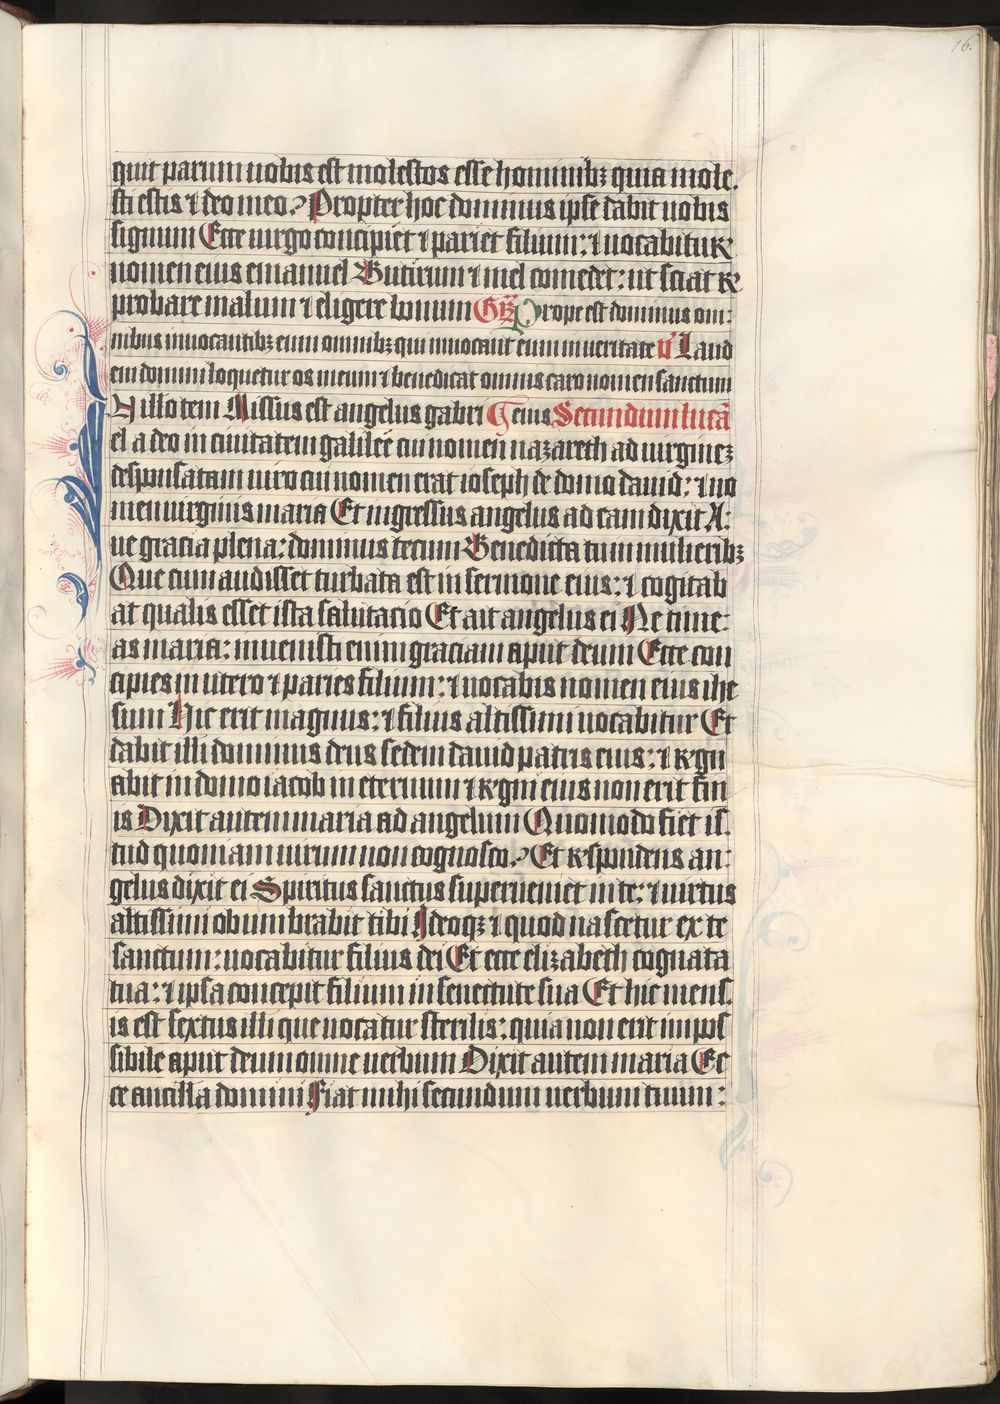 16.
quit parum uobis est molestos esse hominibꝫ quia mole.
sti estis ⁊ deo meo? Propter hoc dominus ipse dabit uobis
signum Ecce uirgo concipiet ⁊ pariet filium: ⁊ uocabitur
nomen eius emanuel Butirum ⁊ mel comedet: ut sciat re
probare malum ⁊ eligere bonum Grꝫ Prope est dominus om:
nibus inuocantibꝫ eum omnibꝫ qui inuocant eum in ueritate v̄ Laud
em domini loquetur os meum ⁊ benedicat omnis caro nomen sanctum
N illo tem Missus est angelus gabri ⸿ eius Secundum lucā
el a deo in ciuitatem galilee cui nomen nazareth ad uirgineꝫ
desponsatam uiro cui nomen erat ioseph de domo dauid: ⁊ no
men uirginis maria Et ingressus angelus ad eam dixit A:
ue gracia plena: dominus tecum Benedicta tu in mulieribꝫ
Que cum audisset turbata est in sermone eius: ⁊ cogitab
at qualis esset ista salutacio Et ait angelus ei Ne time:
as maria: inuenisti enim graciam aput deum Ecce con
cipies in utero ⁊ paries filium: ⁊ uocabis nomen eius ihe
sum Hic erit magnus: ⁊ filius altissimi uocabitur Et
dabit illi dominus deus sedem dauid patris eius: ⁊ regn
abit in domo iacob in eternum ⁊ regni eius non erit fin
is Dixit autem maria ad angelum Quomodo fiet is.
tud quoniam uirum non cognosco? Et respondens an:
gelus dixit ei Spiritus sanctus superueniet in te: ⁊ uirtus
altissimi obumbrabit tibi Ideoqꝫ ⁊ quod nascetur ex te
sanctum: uocabitur filius dei Et ecce elizabeth cognata
tua: ⁊ ipsa concepit filium in senectute sua Et hic mens.
is est sextus illi que uocatur sterilis: quia non erit impos
sibile aput deum omne uerbum Dixit autem maria Ec
ce ancilla domini Fiat mihi secundum uerbum tuum: